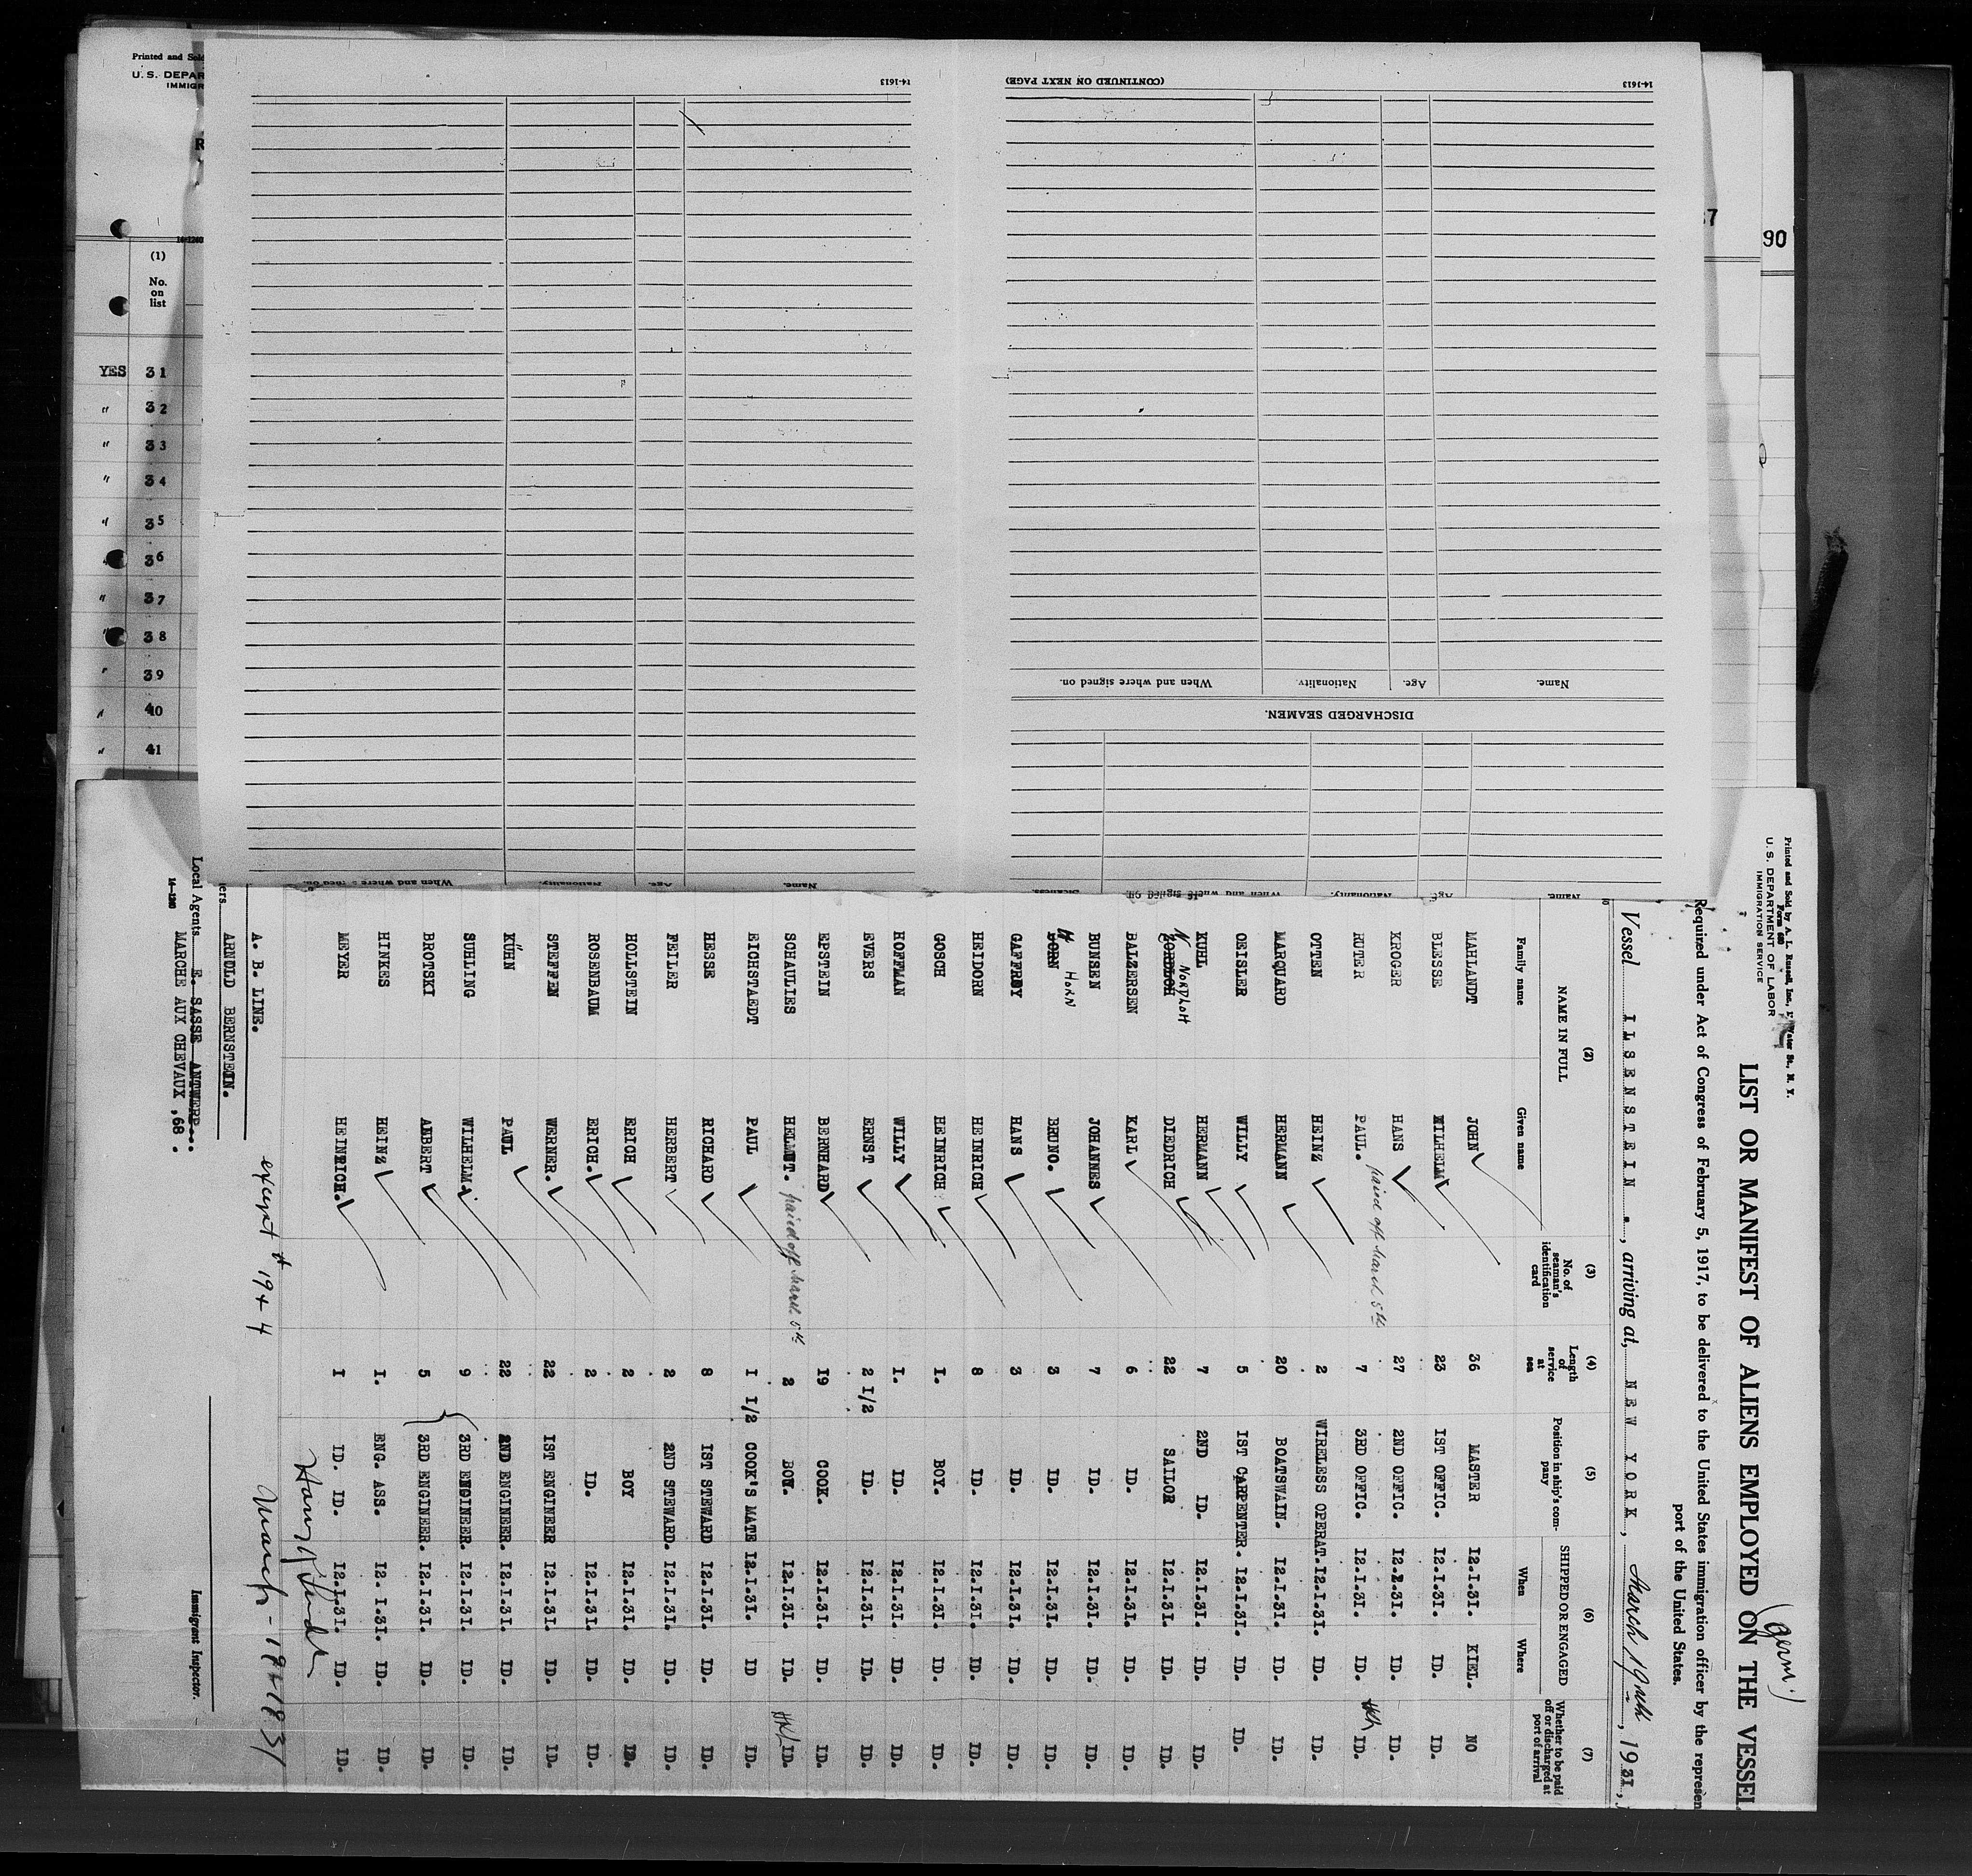 Printed and Sold
U. S. DEPAR
IMMIGR
14-1240
(1)
No.
on
list
YES 31
" 32
" 33
" 34
" 35
" 36
" 37
" 38
" 39
" 40
" 41
7
90
14-1613
14-1613
(CONTINUED ON NEXT PAGE)
Name. Age. Nationality. When and where signed on.
DISCHARGED SEAMEN.
Name. Age. Nationality. When and where signed on.
Name. Age. Nationality. When and where signed on.
Printed and Sold by A. L. Russell, Inc., Water St., N. Y.
Form 680
U. S. DEPARTMENT OF LABOR
IMMIGRATION SERVICE
(Germ.)
LIST OR MANIFEST OF ALIENS EMPLOYED ON THE VESSEL
Required under Act of Congress of February 5, 1917, to be delivered to the United States immigration officer by the represen
port of the United States.
Vessel ILSENSTEIN . , arriving at NEW YORK , March 19th , 1931 ,
(2) (3) (4) (5) (6) (7)
NAME IN FULL
Family name Given name
No. of seaman's identification card
Length of service at sea
Position in ship's company
SHIPPED OR ENGAGED
When Where
Whether to be paid off or discharged at port of arrival
MAHLANDT JOHN 36 MASTER I2.I.3I. KIEL. NO
BLESSE WILHELM 23 IST OFFIC. I2.I.3I. ID. ID.
KROGER HANS 27 2ND OFFIC. I2.I.3I. ID. ID.
RUTER PAUL. paid off March 5th 7 3RD OFFIC. I2.I.3I. ID. ID.
OTTEN HEINZ 2 WIRELESS OPERAT. I2.I.3I. ID. ID.
MARQUARD HERMANN 20 BOATSWAIN. I2.I.3I. ID. ID.
OEISLER WILLY 5 IST CARPENTER. I2.I.3I. ID. ID.
KUHL HERMANN 7 2ND ID. I2.I.3I. ID. ID.
NORDLOH DIEDRICH 22 SAILOR I2.I.3I. ID. ID.
BALZERSEN KARL 6 ID. I2.I.3I. ID. ID.
BUNSEN JOHANNES 7 ID. I2.I.3I. ID. ID.
HORN BRUNO. 3 ID. I2.I.3I. ID. ID.
GAFFRUY HANS 3 ID. I2.I.3I. ID. ID.
HEIDORN HEINRICH 8 ID. I2.I.3I. ID. ID.
GOSCH HEINRICH I. BOY. I2.I.3I. ID. ID.
HOFFMAN WILLY I. ID. I2.I.3I. ID. ID.
EVERS ERNST 2 I/2 ID. I2.I.3I. ID. ID.
EPSTEIN BERNHARD I9 COOK. I2.I.3I. ID. ID.
SCHAULIES HELMUT. paid off March 5th 2 BOY. I2.I.3I. ID. ID.
EICHSTAEDT PAUL I I/2 COOK'S MATE I2.I.3I. ID ID.
HESSE RICHARD 8 IST STEWARD I2.I.3I. ID. ID.
FEILER HERBERT 2 2ND STEWARD. I2.I.3I. ID. ID.
HOLLSTEIN ERICH 2 BOY I2.I.3I. ID. ID.
ROSENBAUM ERICH. 2 ID. I2.I.3I. ID. ID.
STEFFEN WERNER. 22 IST ENGINEER I2.I.3I. ID. ID.
KÜHN PAUL 22 2ND ENGINEER. I2.I.3I. ID. ID.
SUHLING WILHELM. 9 3RD ENGINEER. I2.I.3I. ID. ID.
BROTSKI ALBERT 5 3RD ENGINEER. I2.I.3I. ID. ID.
HINKES HEINZ I. ENG. ASS. I2.I.3I. ID. ID.
MEYER HEINRICH. I ID. ID. I2.I.3I. ID. ID.
A. B. LINE.
except # 19 + 4
March - 19 - 1931
ers ARNOLD BERNSTEIN.
Local Agents E. SASSE ANTWERP..
MARCHE AUX CHEVAUX ,68 .
Immigrant Inspector.
14-1240